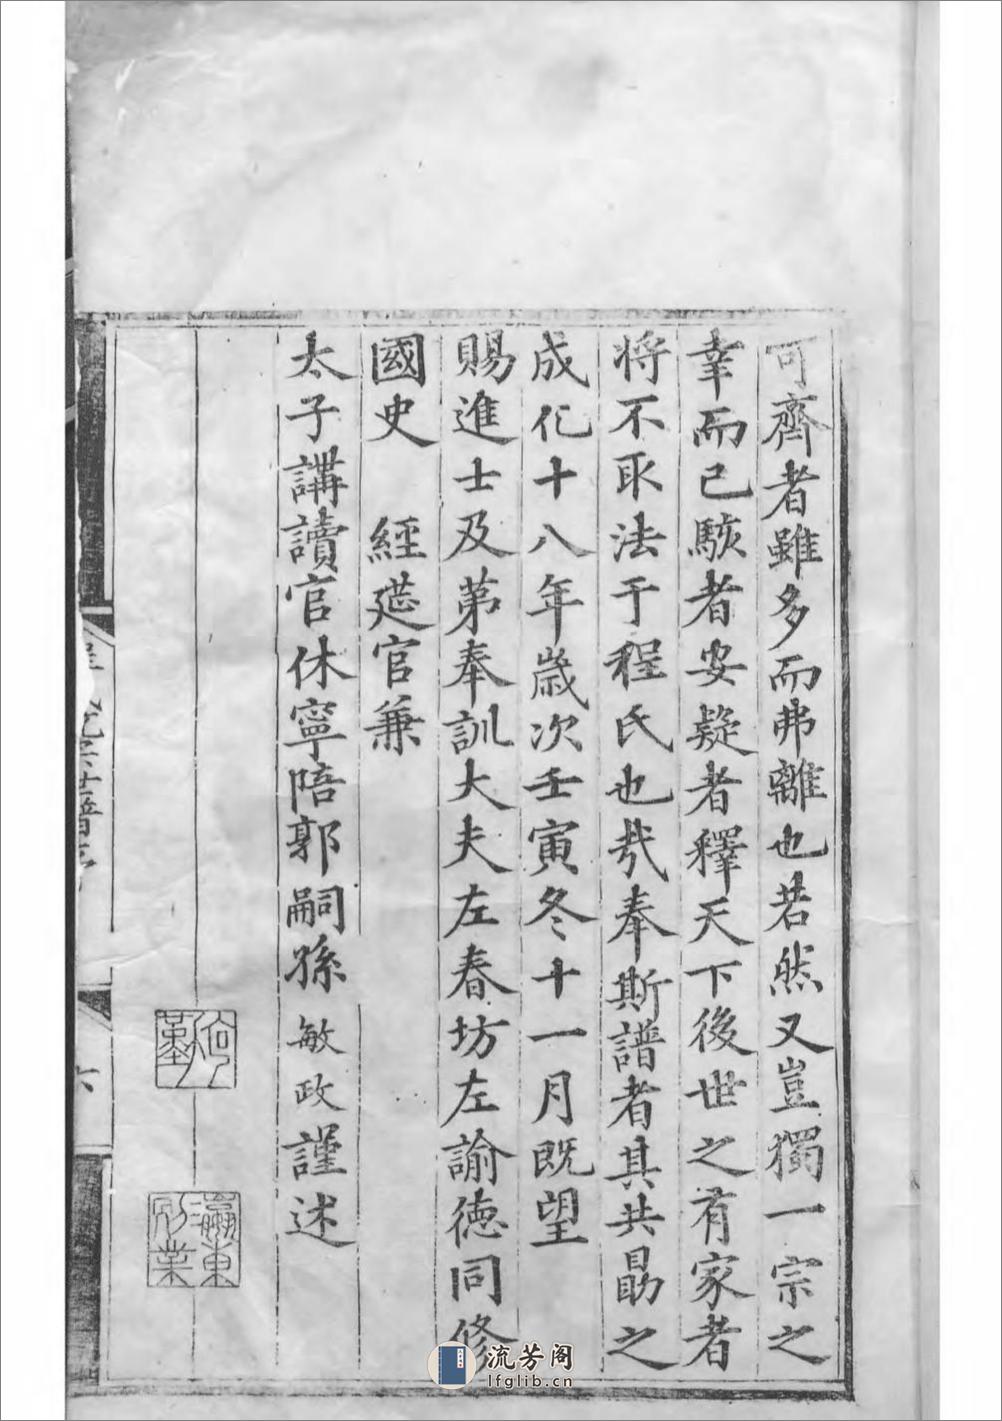 可齊者雖多而弗離也若然又豈獨一宗之
幸而已駭者安疑者釋天下後世之有家者
將不取法于程氏也㦲奉斯譜者其共勗之
成化十八年歲次壬寅冬十一月既望
賜進士及第奉訓大夫左春坊左諭德同修
國史 經筵官兼
太子講讀官休寧陪郭嗣孫敏政謹述
瀛東別業
六
流芳阁
lfglib.cn